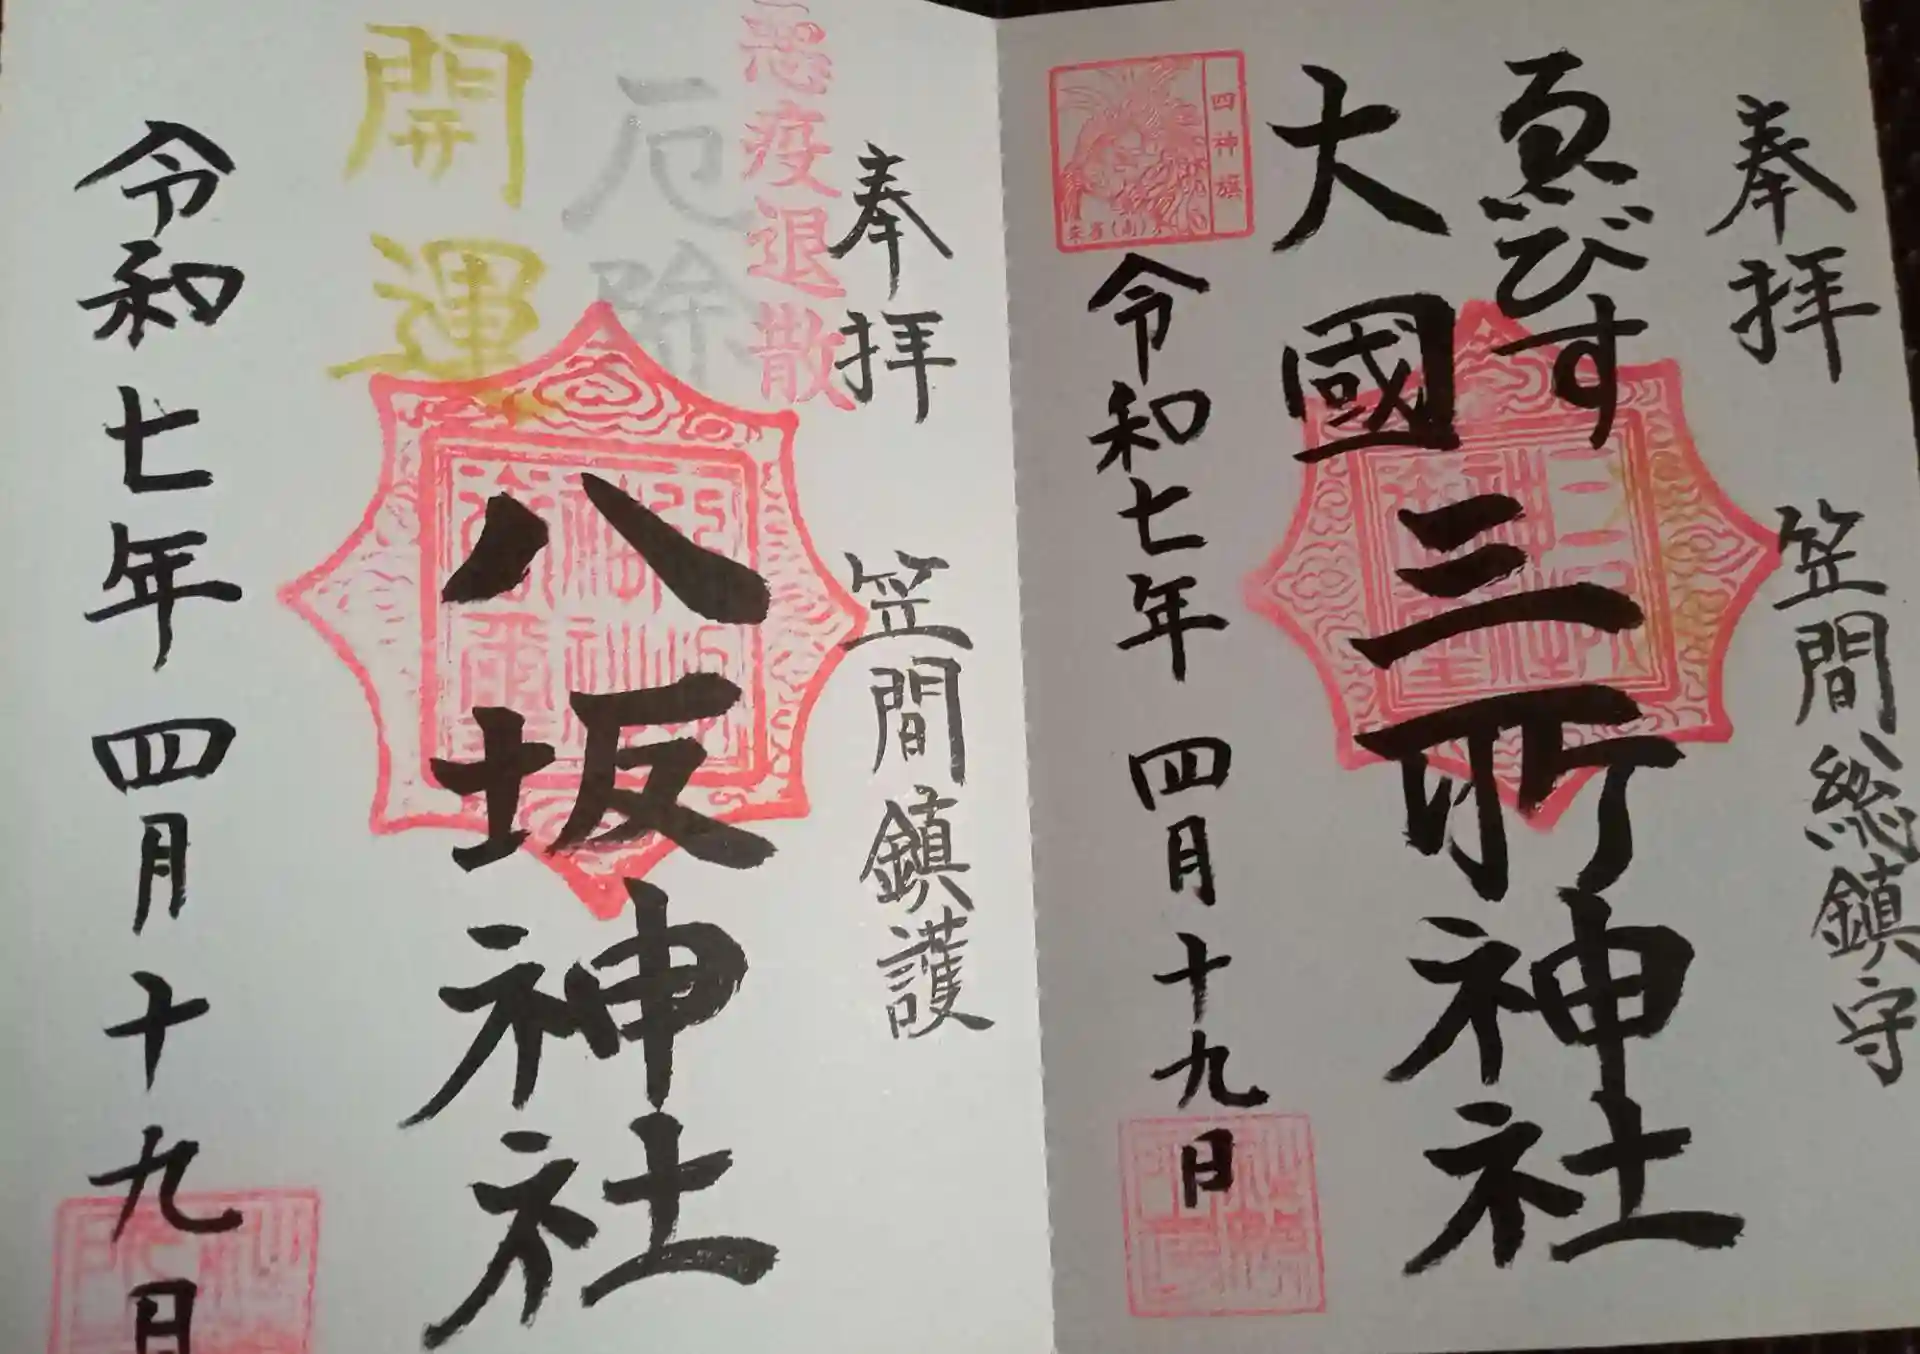 奉拝　笠間総鎮守
ゑびす
大國
三所神社
四神旗
朱雀(南)
令和七年四月十九日
奉拝　笠間鎮護
悪疫退散
厄除
開運
八坂神社
令和七年四月十九日